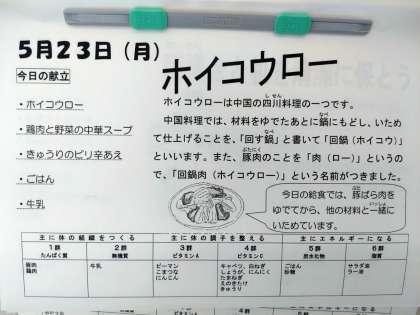 5月23日（月）
ホイコウロー
今日の献立
・ホイコウロー
・鶏肉と野菜の中華スープ
・きゅうりのピリ辛あえ
・ごはん
・牛乳
ホイコウローは中国の四川料理の一つです。
しせん
中国料理では、材料をゆでたあとに鍋にもどし、いため
なべ
て仕上げることを、「回す鍋」と書いて「回鍋（ホイコウ）」
なべ
といいます。また、豚肉のことを「肉（ロー）」というの
ぶたにく
で、「回鍋肉（ホイコウロー）」という名前がつきました。
今日の給食では、豚ばら肉を
ゆでてから、他の材料と一緒に
いっしょ
いためています。
主に体の組織をつくる
主に体の調子を整える
主にエネルギーになる
1群 たんぱく質
2群 無機質
3群 ビタミンA
4群 ビタミンC
5群 炭水化物
6群 脂質
豚肉
鶏肉
牛乳
ピーマン
こまつな
にんじん
キャベツ、白ねぎ
しょうが、にんにく
たまねぎ
えのきたけ
きゅうり
ごはん
砂糖
サラダ油
ラー油